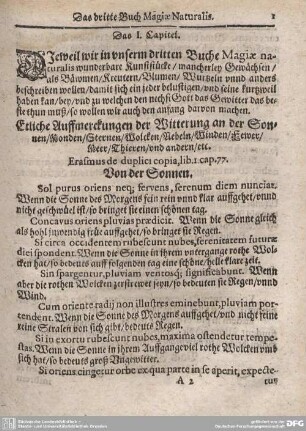 Das dritte Buch Magiæ Naturalis. 1
Das I. Capitel.
DJeweil wir in vnserm dritten Buche Magiæ na-
turalis wunderbare Kunststücke / mancherley Gewächsen /
als Bäwmen / Kreutern / Blumen / Wurtzeln vnnd anders
beschreiben wollen / damit sich ein jeder belustigen / vnd seine kurtzweil
haben kan / bey / vnd zu welchen den nechst Gott das Gewitter das be-
ste thun muß / so wollen wir auch den anfang darvon machen.
Etliche Auffmerckungen der Witterung an der Son-
nen / Monden / Sternen / Wolcken / Nebeln / Winden / Fewer /
Meer / Thieren / vnd andern / etc.
Erasmus de duplici copia, lib. 1. cap. 77.
Von der Sonnen.
Sol purus oriens neq; fervens, serenum diem nunciat.
Wenn die Sonne des Morgens fein rein vnnd klar auffgehet / vnnd
nicht geschmelt ist / so bringet sie einen schönen tag.
Concavus oriens pluvias prædicit. Wenn die Sonne gleich
als hohl inwendig früe auffgehet / so bringet sie Regen.
Si circa occidentem rubescunt nubes, serenitatem futuræ
diei spondent. Wenn die Sonne in ihrem vntergange rothe Wol-
cken hat / so bedeut es auff folgenden tag eine schöne / helle klare zeit.
Sin spargentur, pluviam ventosq; significabunt. Wenn
aber die rothen Wolcken zerstrewet seyn / so bedeuten sie Regen / vnnd
Wind.
Cum oriente radij non illustres eminebunt, pluviam por-
tendent. Wenn die Sonne des Morgens auffgehet / vnd nicht feine
reine Stralen von sich gibt / bedeuts Regen.
Si in exortu rubescunt nubes, maxima ostendetur tempe-
stas. Wenn die Sonne in ihrem Auffgange viel rothe Wolcken vmb
sich hat / so bedeuts groß Vngewitter.
Si oriens cingetur orbe ex qua parte in se aperit, expecte-
A 2 tur